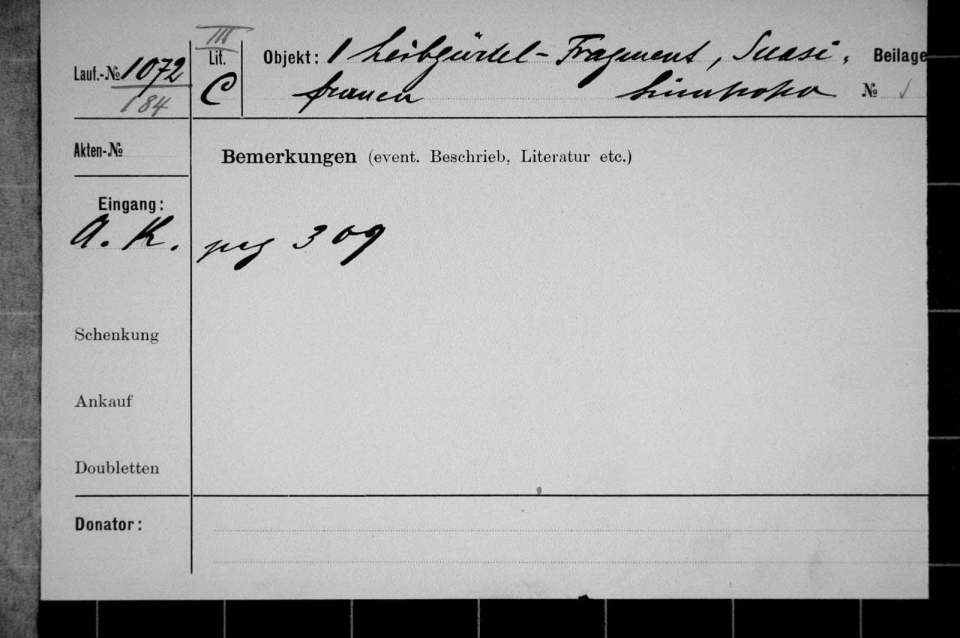 III
Lauf.-№ 1072
184
Lit.
C
Objekt: 1 Leibgürtel-Fragment, Suasi-
frauen Limpopo
Beilage
№ ✓
Akten-№
Bemerkungen (event. Beschrieb, Literatur etc.)
Eingang:
A. K. pag 309
Schenkung
Ankauf
Doubletten
Donator: